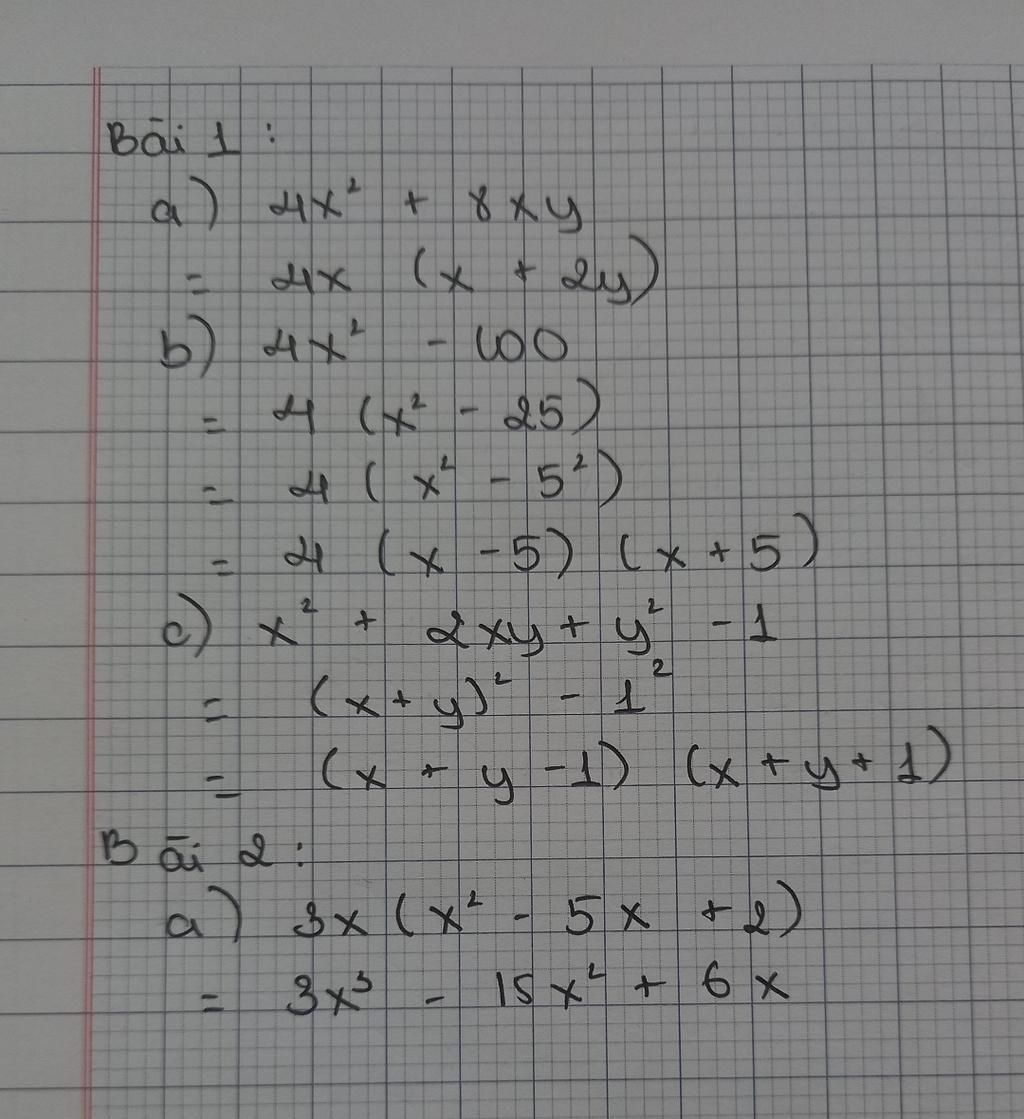 Bài 1 :
a) 4x² + 8xy
= 4x (x + 2y)
b) 4x² - 100
= 4 (x² - 25)
= 4 ( x² - 5²)
= 4 (x - 5) (x + 5)
c) x² + 2xy + y² - 1
= (x + y)² - 1²
= (x + y - 1) (x + y + 1)
Bài 2 :
a) 3x (x² - 5x + 2)
= 3x³ - 15x² + 6x